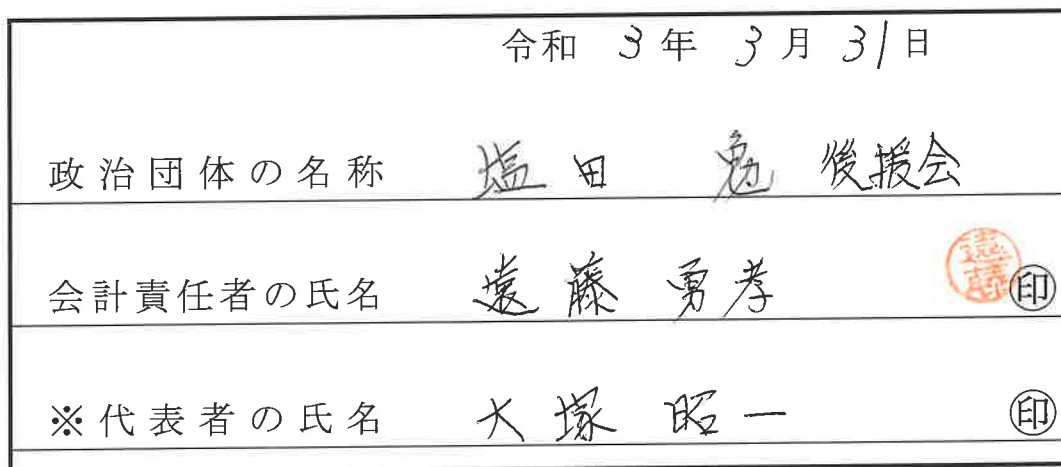 令和 3年 3月 31日
政治団体の名称 塩田 勉 後援会
会計責任者の氏名 遠藤 勇孝 遠藤 印
※代表者の氏名 大塚 昭一 印